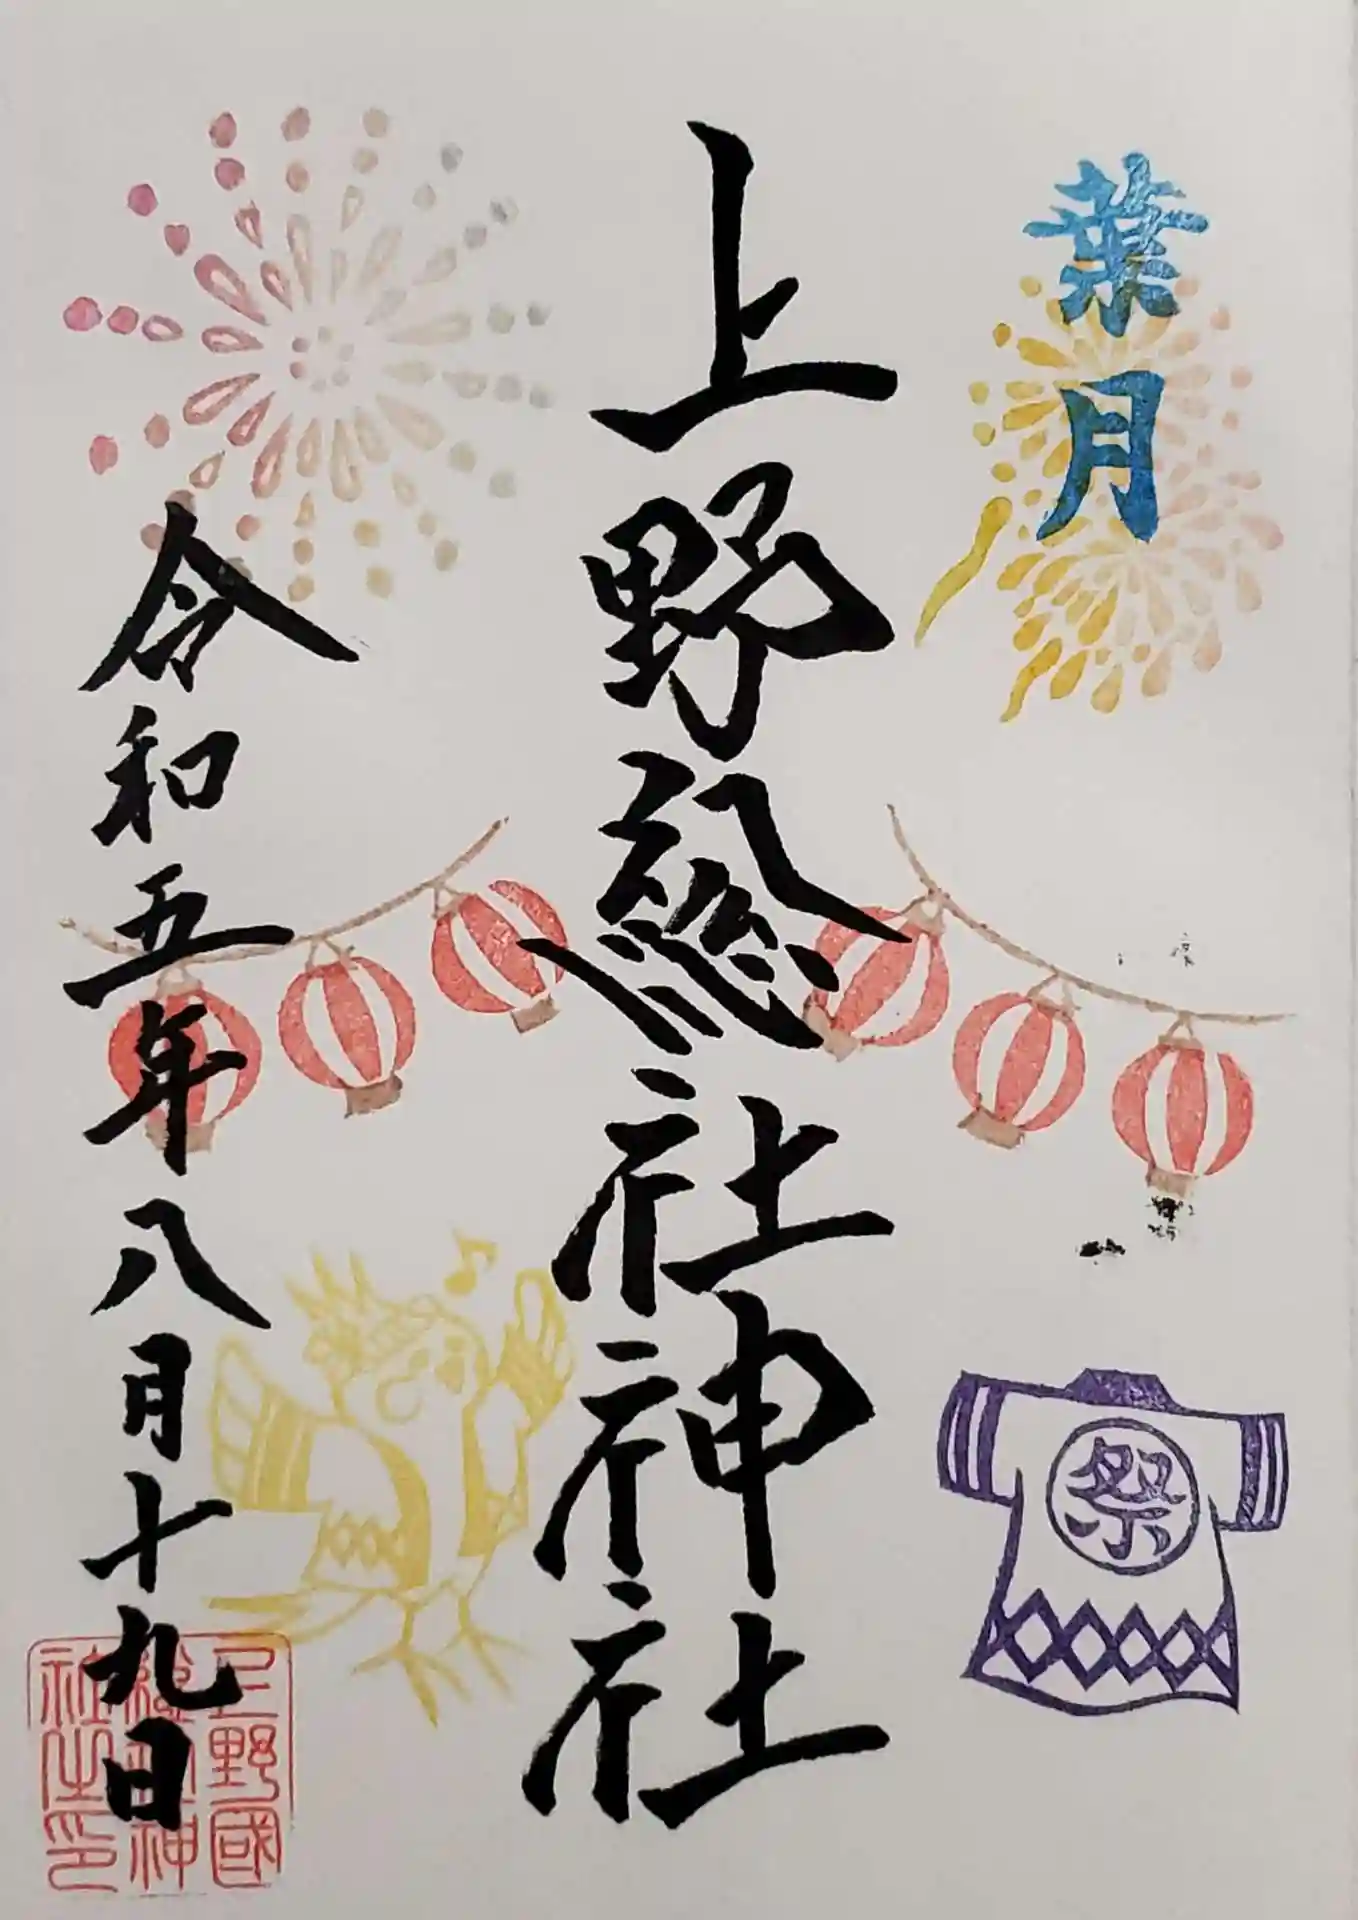 葉月
祭
上野総社神社
令和五年八月十九日
上野國
総社神
社之印